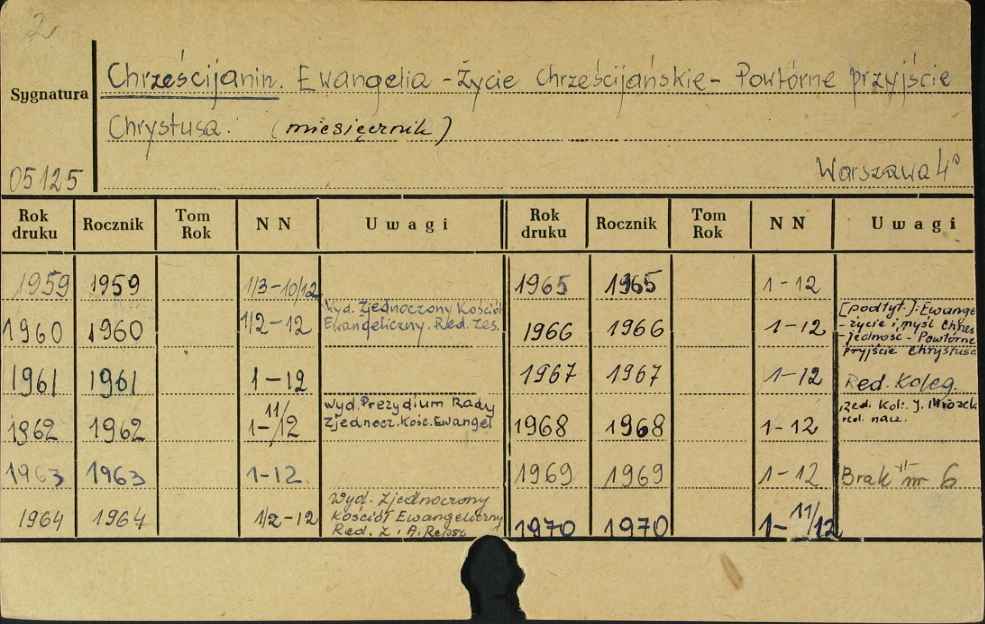 2
Sygnatura
05125
Chrześcijanin. Ewangelia - Życie Chrześcijańskie - Powtórne przyjście
Chrystusa. (miesięcznik)
Warszawa 4°
Rok druku Rocznik Tom Rok NN Uwagi Rok druku Rocznik Tom Rok NN Uwagi
1959 1959 1/3-10/12
Wyd. Zjednoczony Kościół
1960 1960 1/2-12 Ewangeliczny. Red. Zes.
1961 1961 1-12
Wyd. Prezydium Rady
1962 1962 1-11/12 Zjednocz. Kośc. Ewangel
1963 1963 1-12
Wyd. Zjednoczony
1964 1964 1/2-12 Kościół Ewangeliczny
Red. Z. i A.
1965 1965 1-12
[podtyt.]: Ewange
1966 1966 1-12 - życie i myśl Chrześ
- jedność - Powtórne
przyjście Chrystusa
1967 1967 1-12 Red. Koleg.
Red. Kol. J. Mrozek
1968 1968 1-12 red. nacz.
-"-
1969 1969 1-12 Brak nr 6
1970 1970 1-11/12